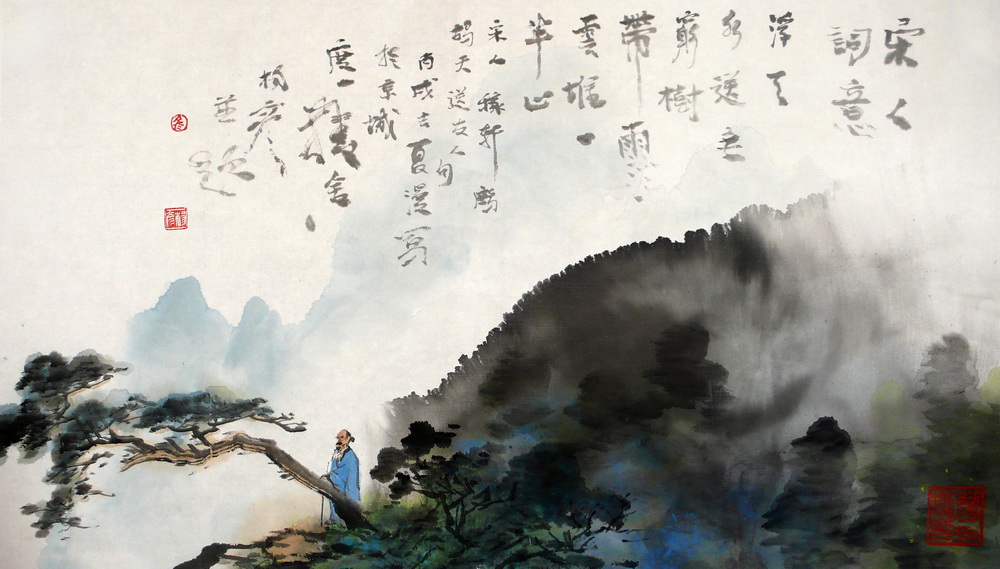 宋人
詞意
浮天
水送無
窮樹
帶雨
雲埋一
半山
宋人稼軒鷓
鴣天送友人句
丙戌吉夏漫寫
於京城
度一舍
楊彥
並題